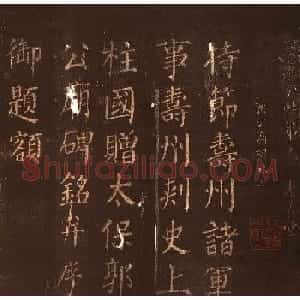 持節壽州諸軍
事壽州刾史上
柱國贈太保郭
公廟碑銘并序
御題額
Shufaziliao.com